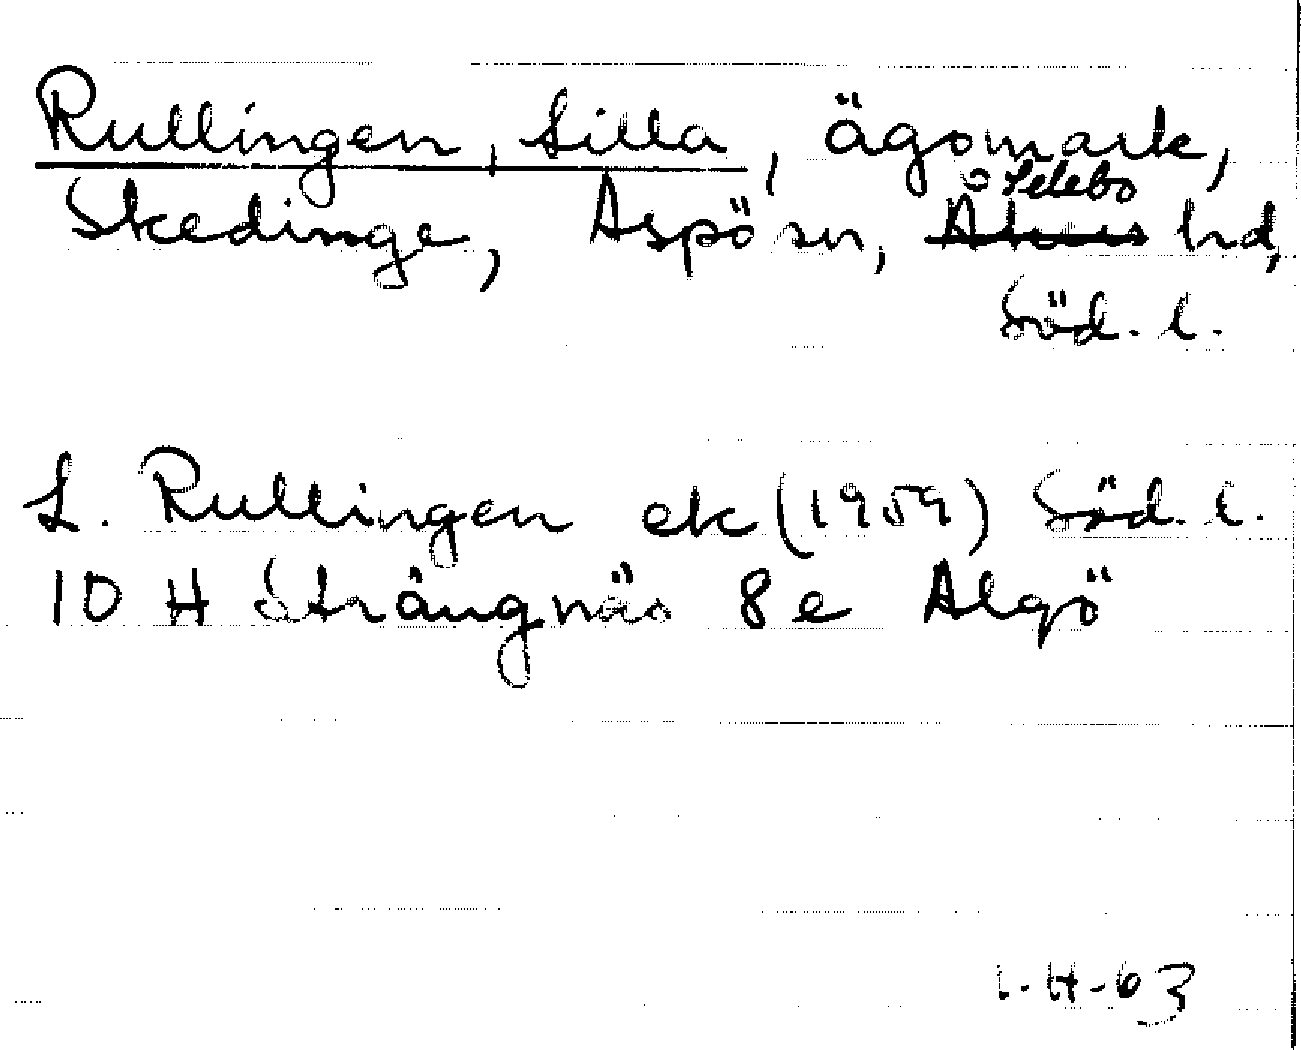 Rullingen, Lilla, ägomark,
Skedinge, Aspö sn, Åkers Selebo hd,
Söd. l.
L. Rullingen ek (1959) Söd. l.
10 H Strängnäs 8 e Algö
I.H-63